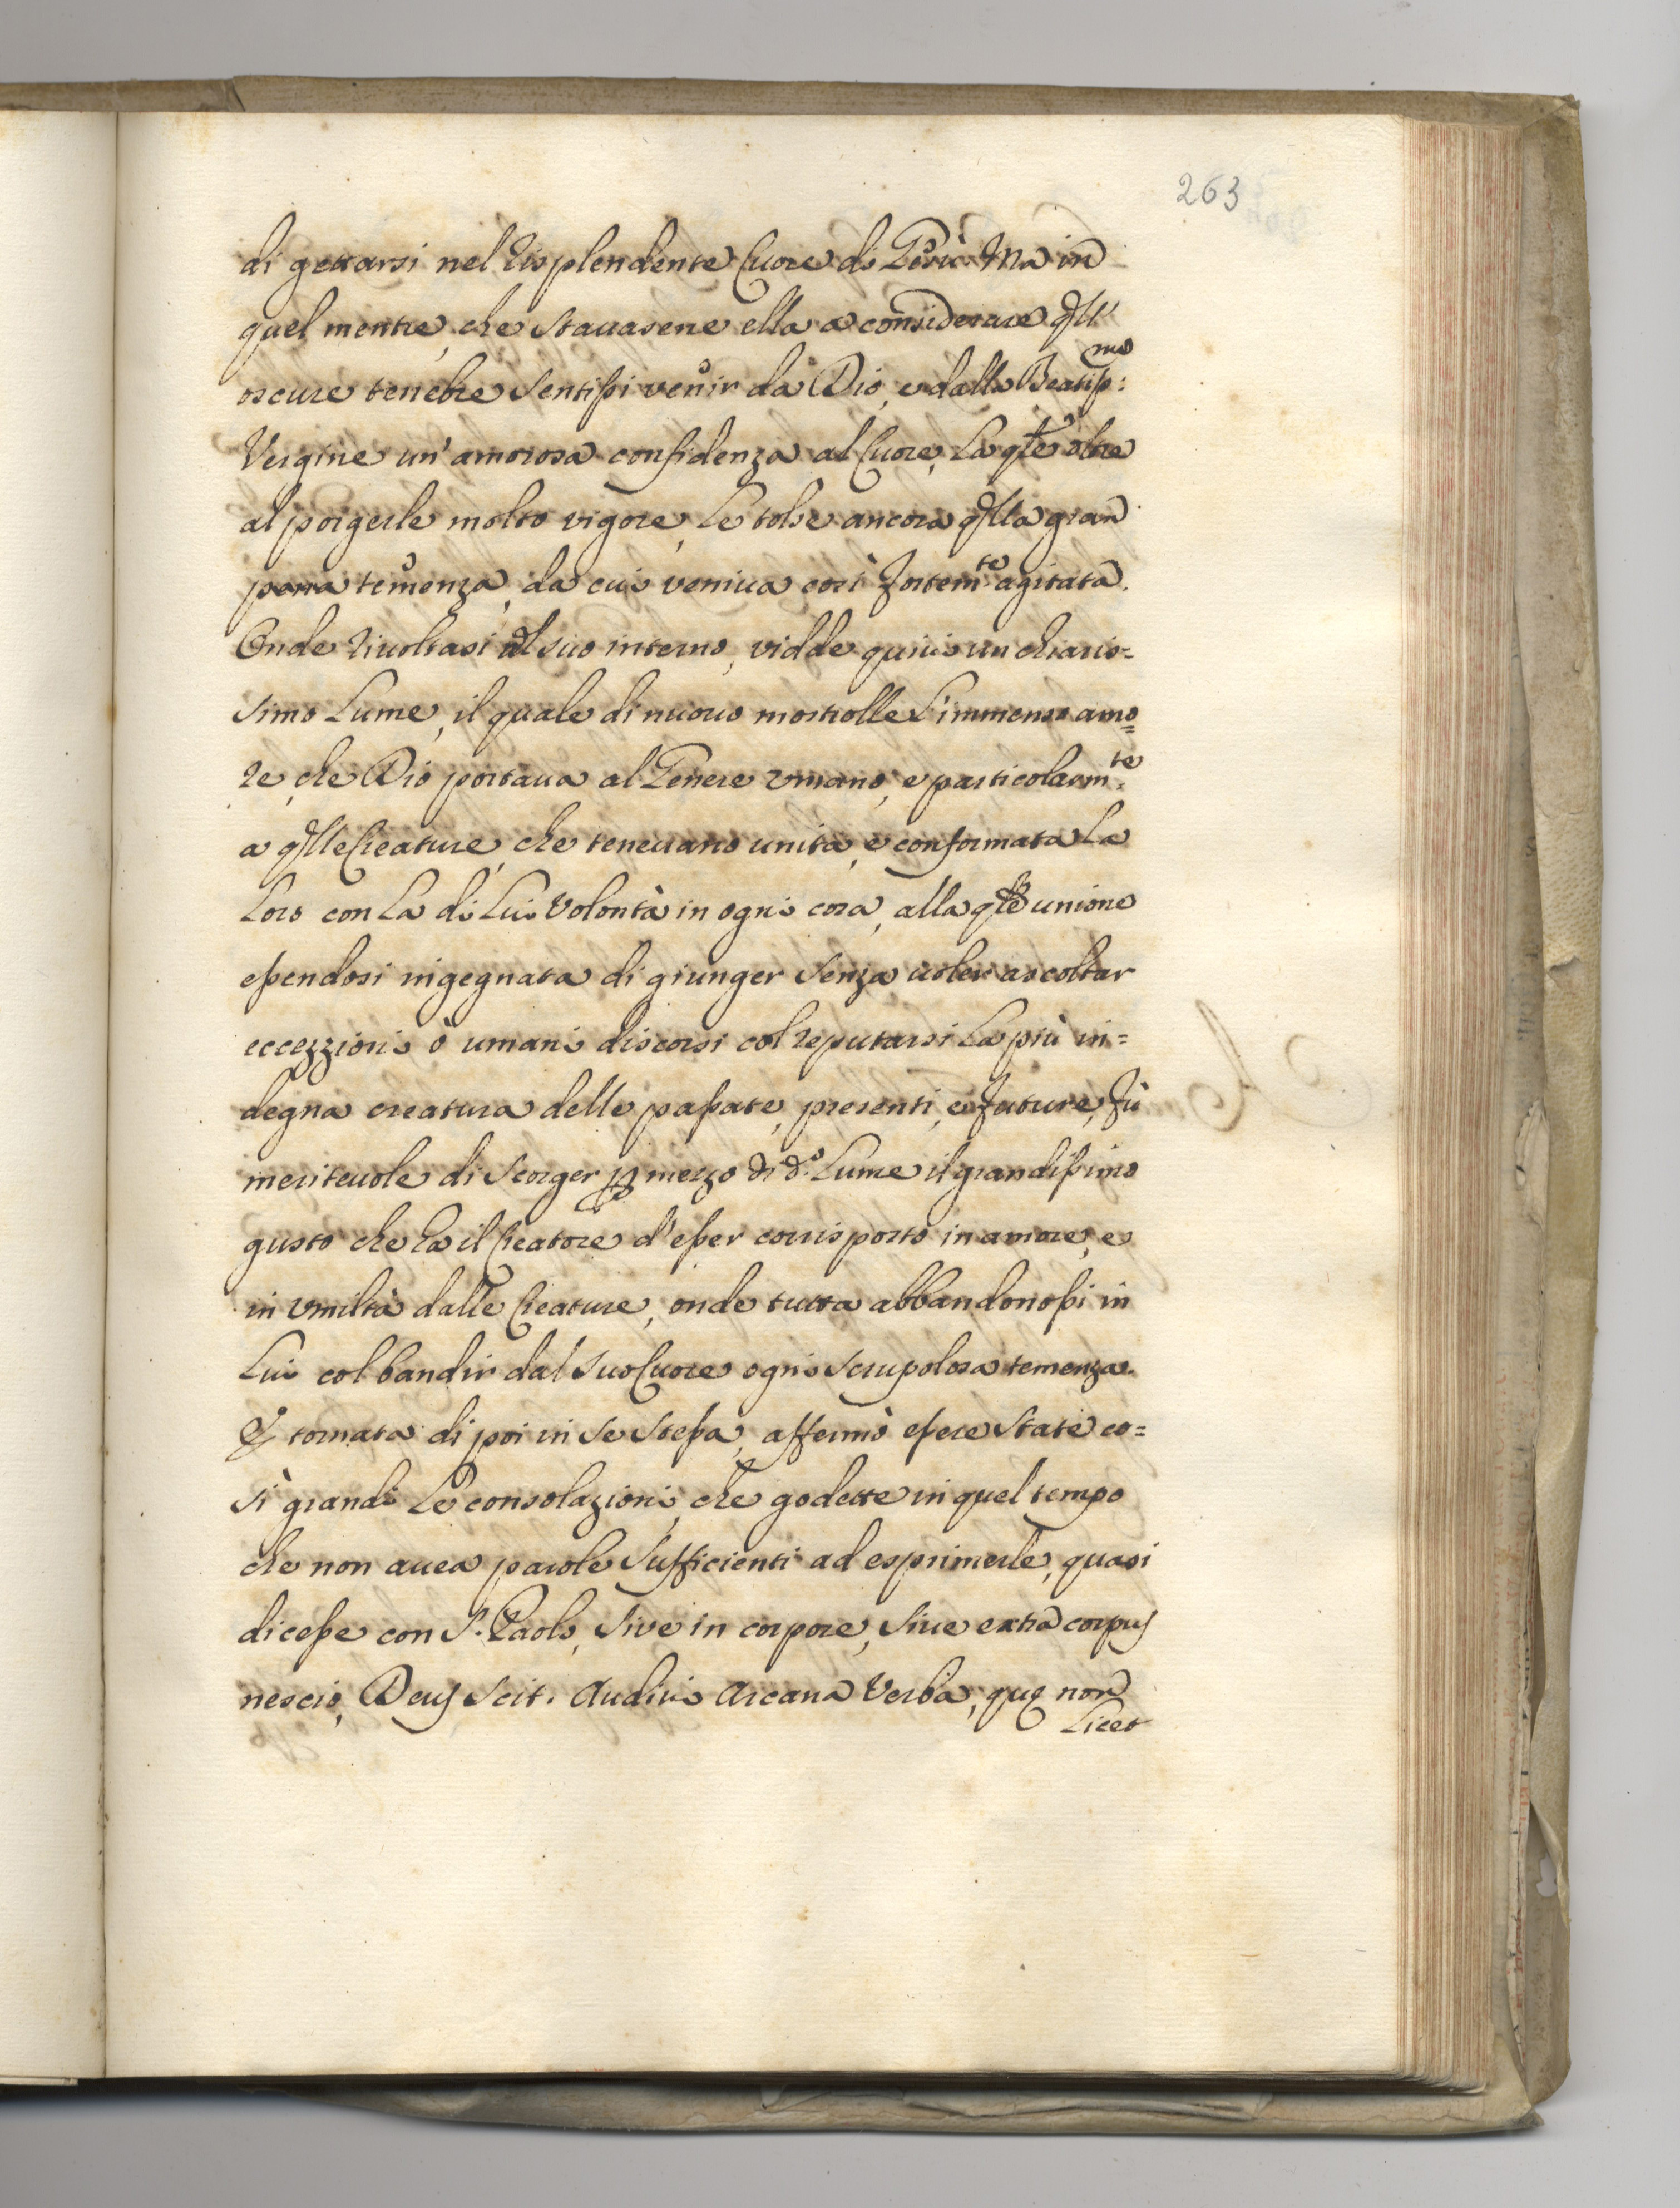 263
di gettarsi nel risplendente Cuore di Giesù. Ma in
quel mentre, che stauasene ella a considerare qll'
oscure tenebre sentissi venir da Dio, e dalla Beatiss:ma
Vergine un' amorosa confidenza al Cuore, La qle oltre
al porgerle molto vigore, Le tolse ancora qlla gran
temenza, da cui veniua così fortemte agitata.
Onde riuoltasi al suo interno, vidde quiui un chiaris=
simo Lume, il quale di nuouo mostrolle L'immenso amo=
re, che Dio portaua al Genere vmano, e particolarmte:
a qlle Creature, che teneuano unita, e conformata La
Loro con La di Lui Volontà in ogni cosa, alla qle unione
essendosi ingegnata di giunger senza uoler ascoltar
eccezzioni ò umani discorsi col reputarsi La più in=
degna creatura delle passate, presenti, e future, fù
meriteuole di scorger p mezzo di d.o Lume il grandissimo
gusto che ha il Creatore d'esser corrisposto in amore, e
in vmiltà dalle Creature, onde tutta abbandonossi in
Lui col bandir dal suo Cuore ogni scrupolosa temenza.
E tornata di poi in se stessa, affermò essere state co=
sì grandi Le consolazioni, che godette in quel tempo
che non auea parole sufficienti ad esprimerle, quasi
dicesse con S. Paolo, Sive in corpore, siue extra corpus
nescio, Deus scit. Audiui Arcana Verba, quę non
Licet